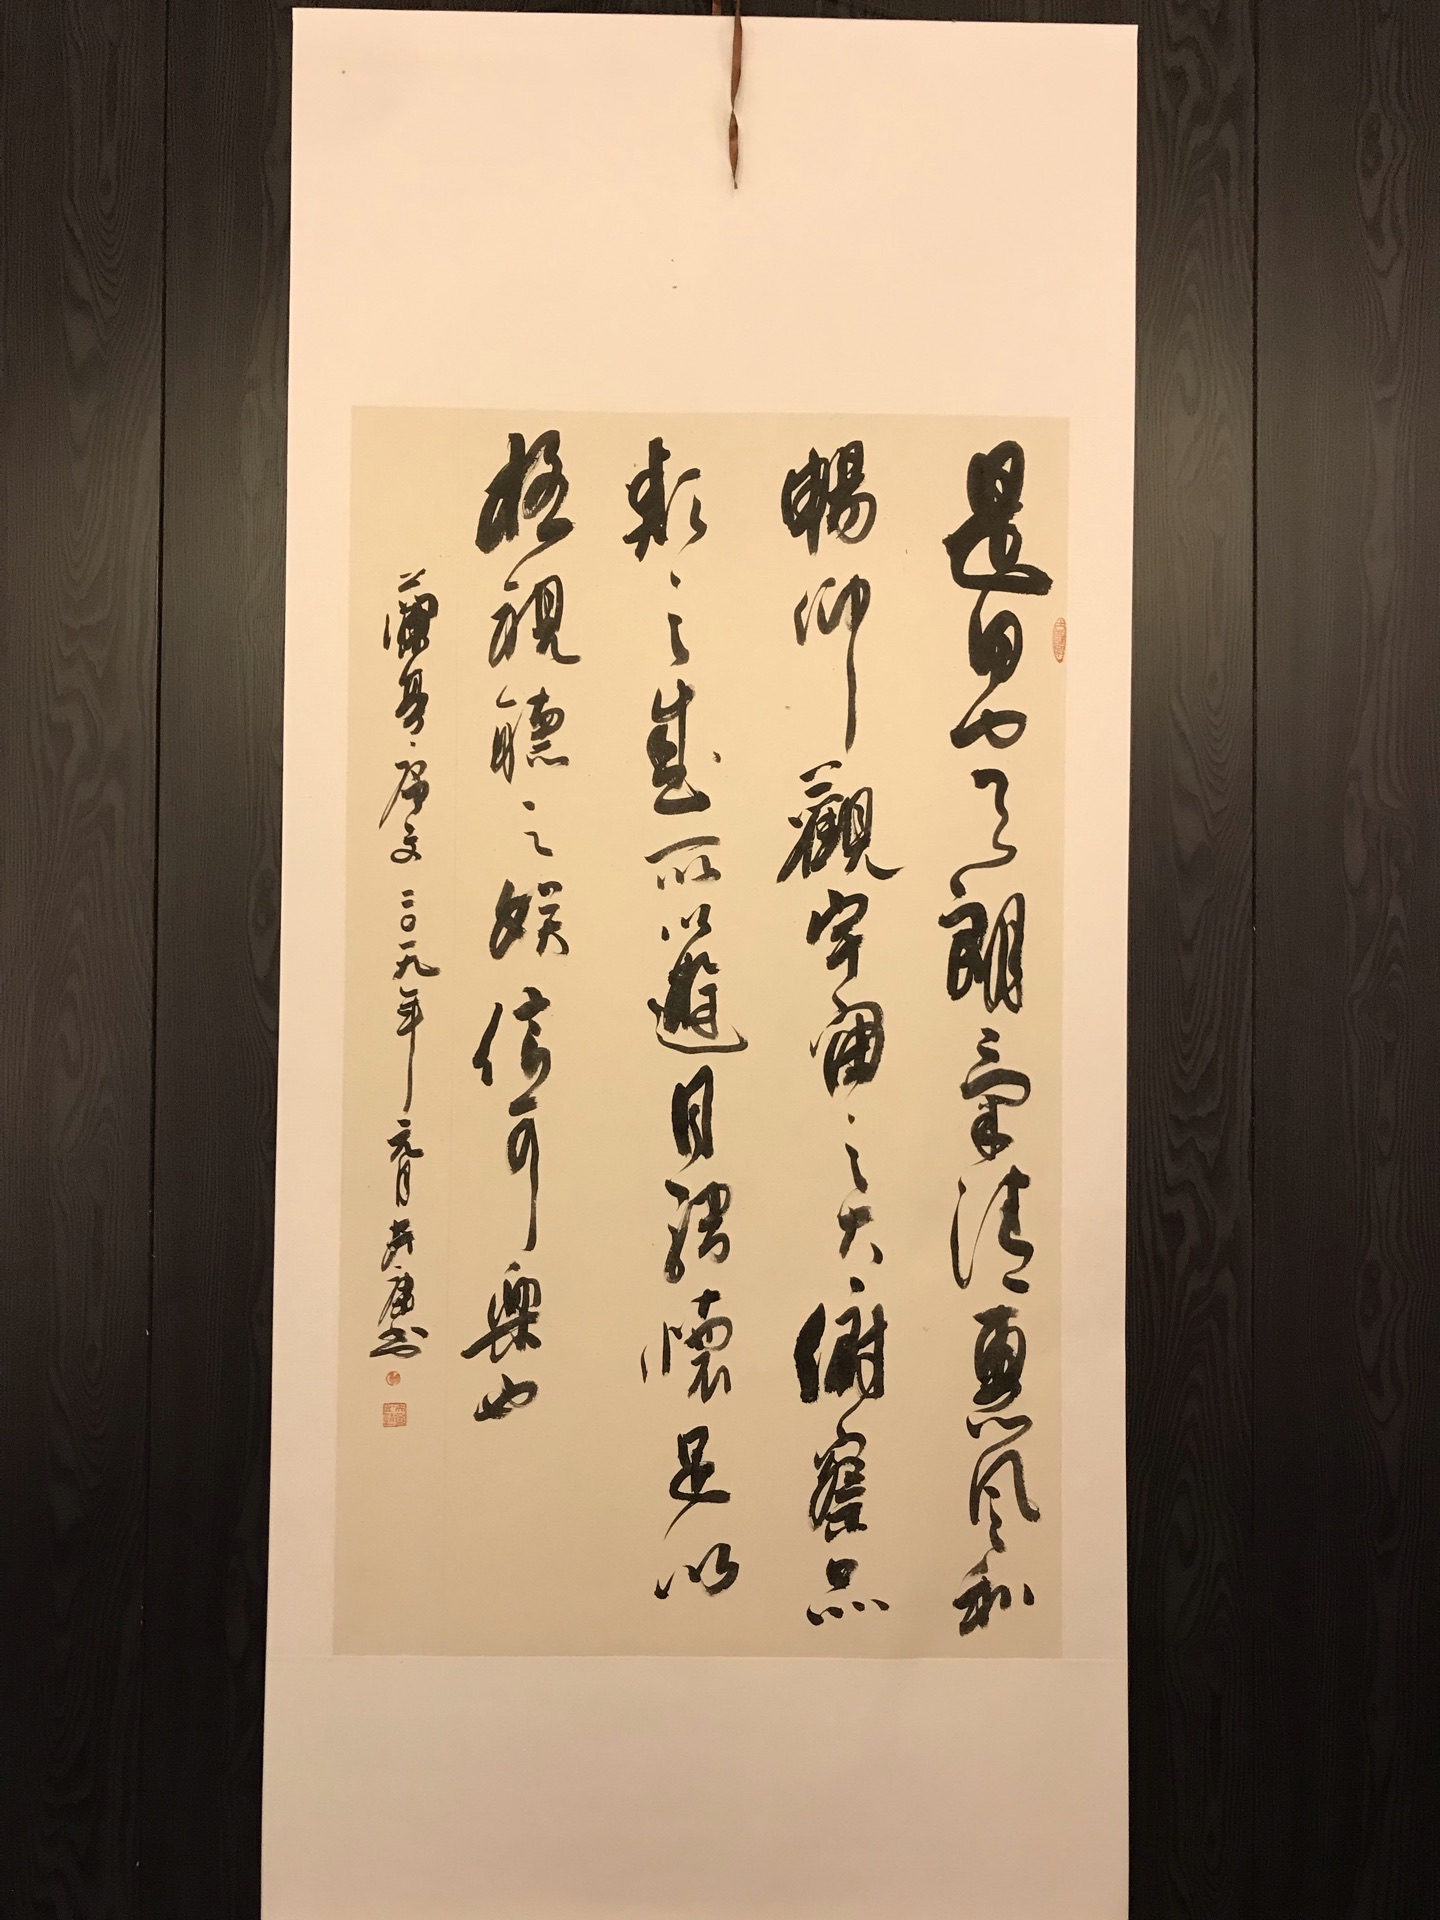 是日也天朗氣清惠風和
暢仰觀宇宙之大俯察品
類之盛所以遊目騁懷足以
極視聽之娛信可樂也
蘭亭序文二〇一九年元月